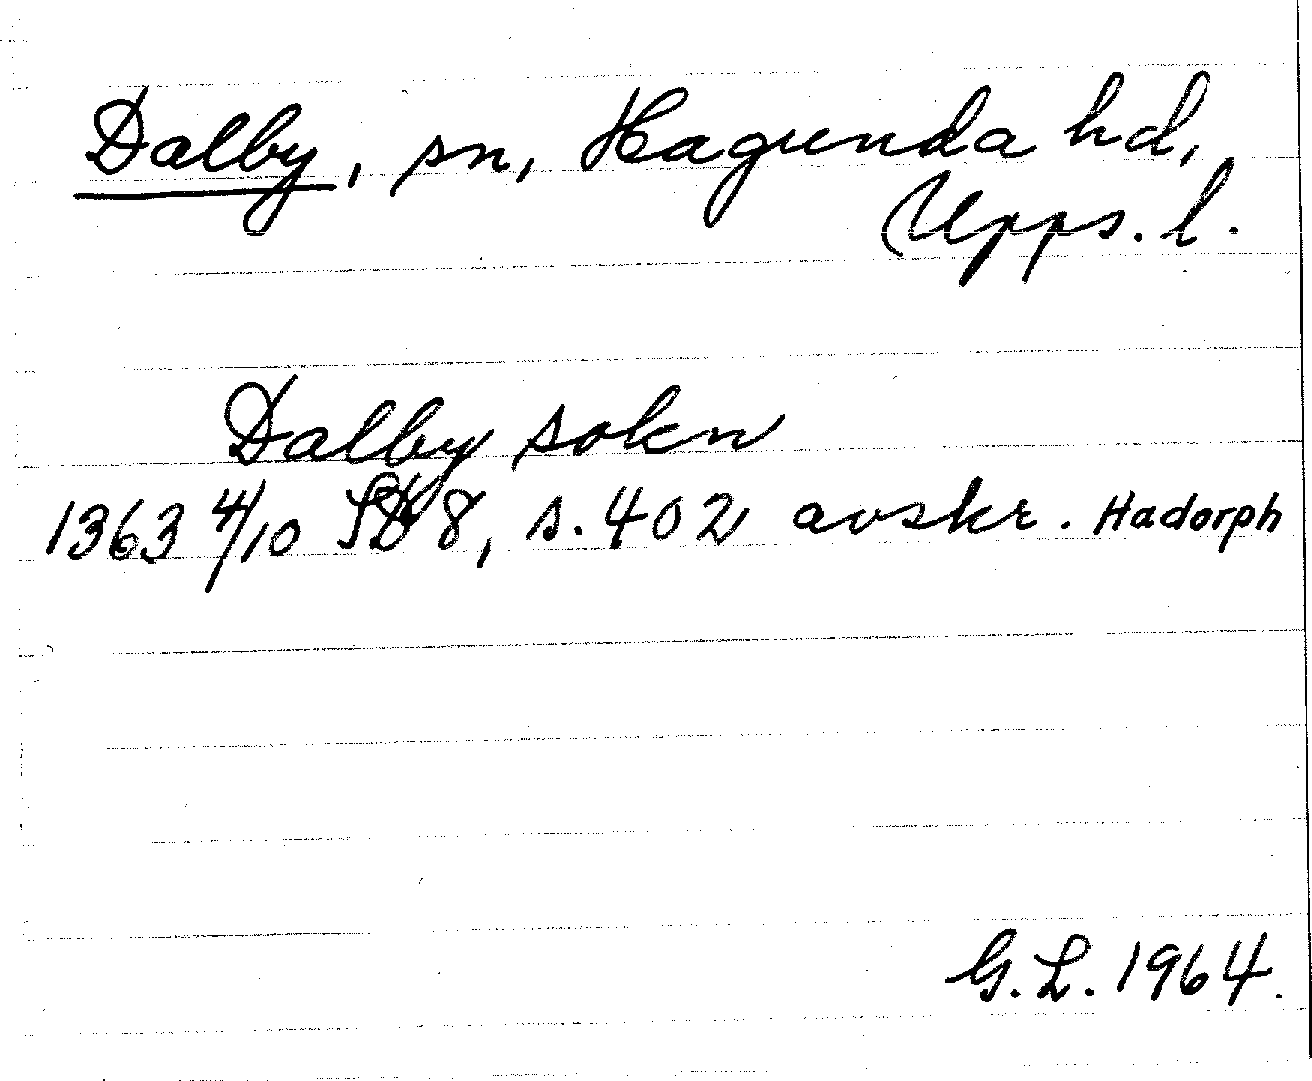 Dalby, sn, Hagunda hd,
Upps. l.
Dalby sokn
1363 4/10 SD 8, s. 402 avskr. Hadorph
G. L. 1964.